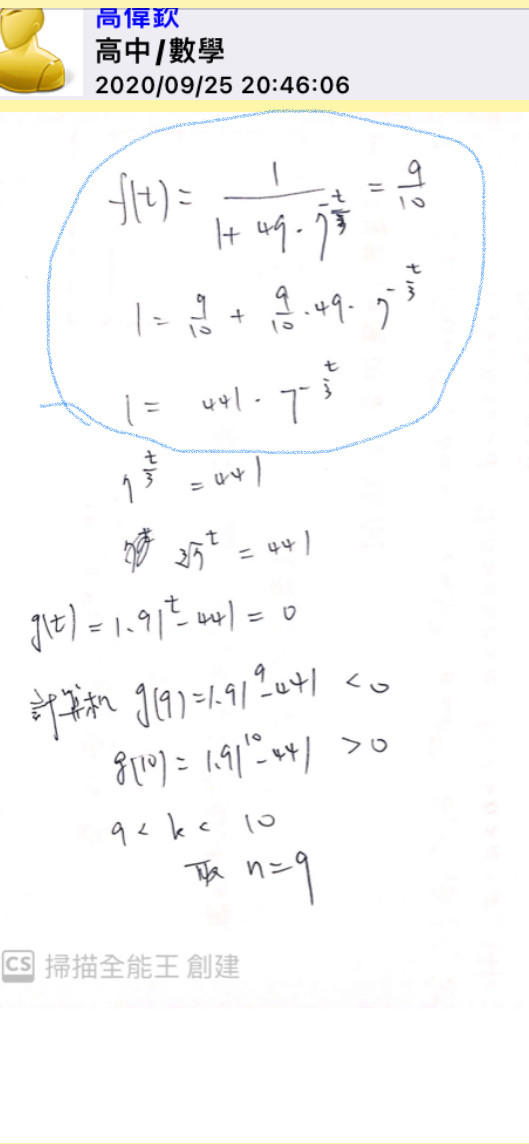 高偉欽
高中/數學
2020/09/25 20:46:06
f(t) = 1/(1 + 49 · 7^(-t/3)) = 9/10
1 = 9/10 + 9/10 · 49 · 7^(-t/3)
1 = 441 · 7^(-t/3)
7^(t/3) = 441
∛7^t = 441
g(t) = 1.91^t - 441 = 0
計算机 g(9) = 1.91^9 - 441 < 0
g(10) = 1.91^10 - 441 > 0
9 < k < 10
取 n = 9
CS 掃描全能王 創建